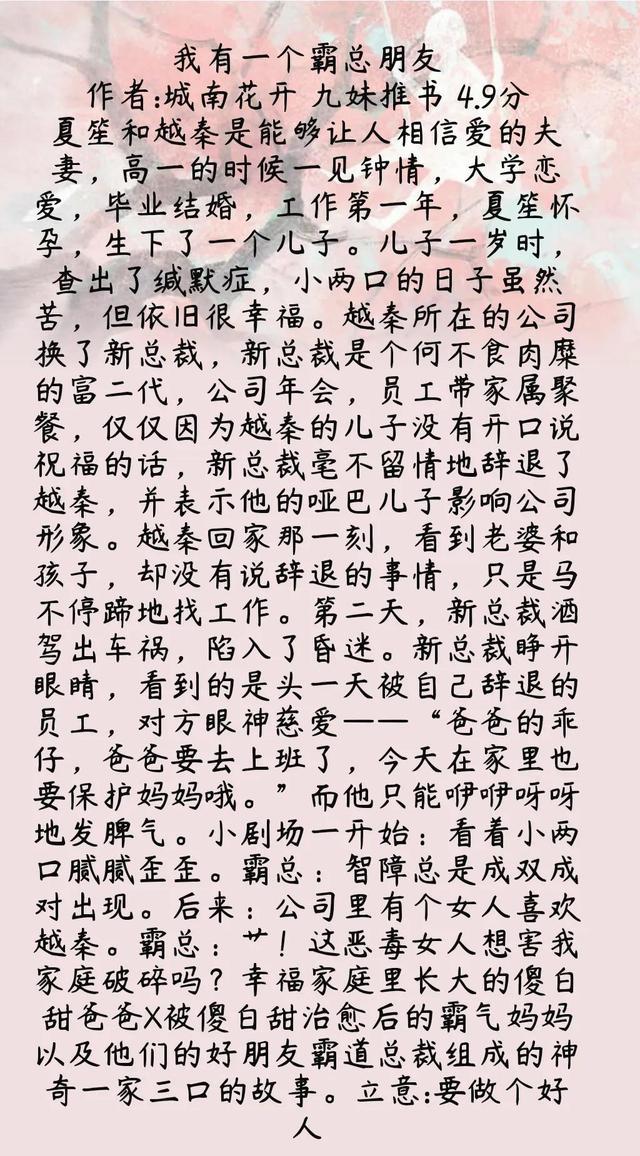 我有一个霸总朋友
作者:城南花开 九妹推书 4.9分
夏笙和越秦是能够让人相信爱的夫
妻，高一的时候一见钟情，大学恋
爱，毕业结婚，工作第一年，夏笙怀
孕，生下了一个儿子。儿子一岁时，
查出了缄默症，小两口的日子虽然
苦，但依旧很幸福。越秦所在的公司
换了新总裁，新总裁是个何不食肉糜
的富二代，公司年会，员工带家属聚
餐，仅仅因为越秦的儿子没有开口说
祝福的话，新总裁毫不留情地辞退了
越秦，并表示他的哑巴儿子影响公司
形象。越秦回家那一刻，看到老婆和
孩子，却没有说辞退的事情，只是马
不停蹄地找工作。第二天，新总裁酒
驾出车祸，陷入了昏迷。新总裁睁开
眼睛，看到的是头一天被自己辞退的
员工，对方眼神慈爱——“爸爸的乖
仔，爸爸要去上班了，今天在家里也
要保护妈妈哦。”而他只能咿咿呀呀
地发脾气。小剧场一开始：看着小两
口腻腻歪歪。霸总：智障总是成双成
对出现。后来：公司里有个女人喜欢
越秦。霸总：艹！这恶毒女人想害我
家庭破碎吗？幸福家庭里长大的傻白
甜爸爸X被傻白甜治愈后的霸气妈妈
以及他们的好朋友霸道总裁组成的神
奇一家三口的故事。立意:要做个好
人